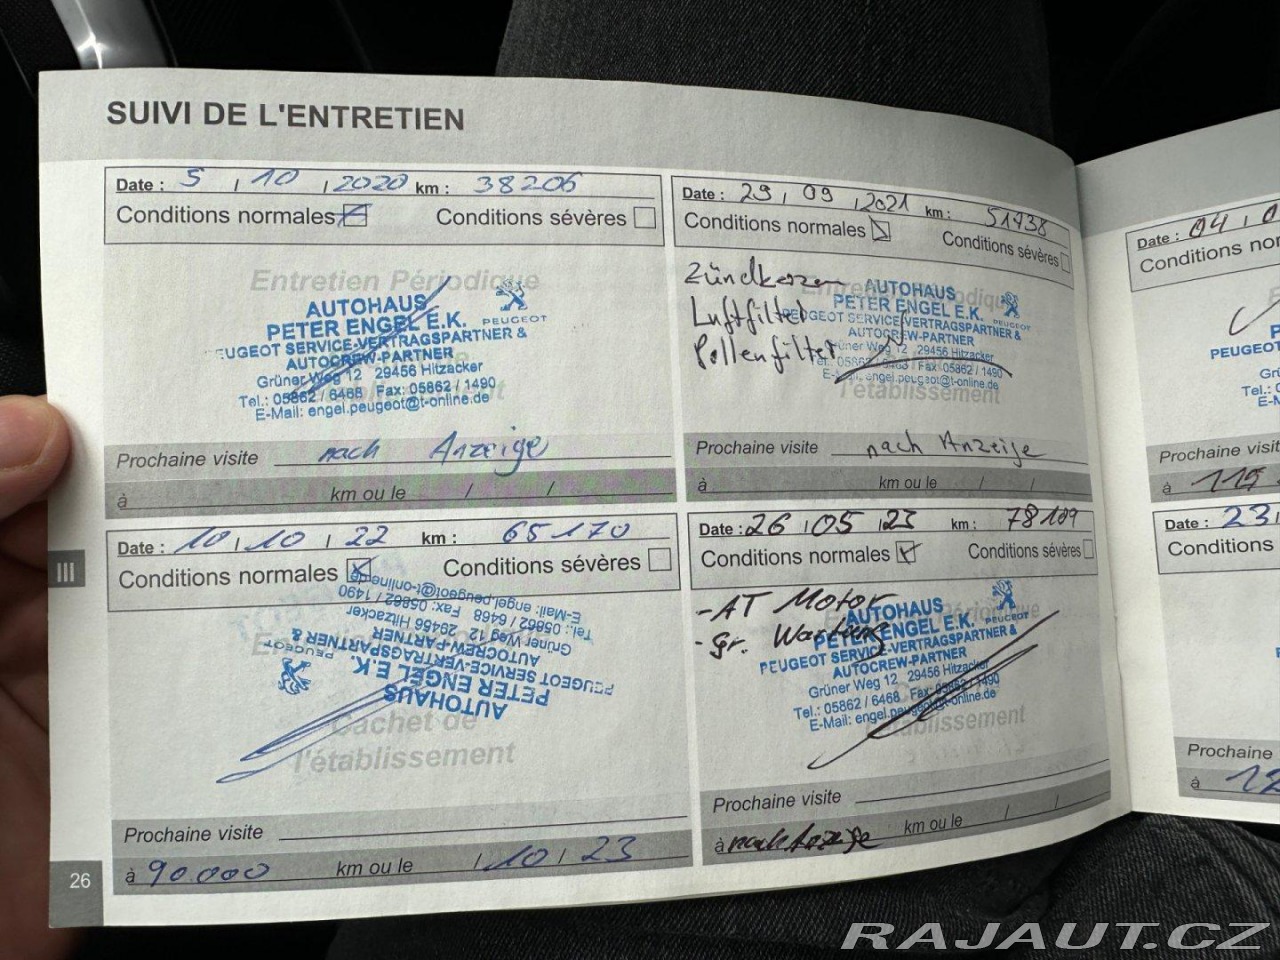 SUIVI DE L'ENTRETIEN
Date : 5 / 10 / 2020 km : 38206
Conditions normales Conditions sévères
Entretien Périodique
AUTOHAUS
PETER ENGEL E.K.
PEUGEOT
EUGEOT SERVICE-VERTRAGSPARTNER &
AUTOCREW-PARTNER
Grüner Weg 12 29456 Hitzacker
Tel.: 05862 / 6468 Fax: 05862 / 1490
E-Mail: engel.peugeot@t-online.de
Prochaine visite nach Anzeige
à km ou le / /
Date : 29 / 09 / 2021 km : 51438
Conditions normales Conditions sévères
Zündkerzen
Luftfilter
Pollenfilter
AUTOHAUS
PETER ENGEL E.K.
PEUGEOT
PEUGEOT SERVICE-VERTRAGSPARTNER &
AUTOCREW-PARTNER
Grüner Weg 12 29456 Hitzacker
Tel.: 05862 / 6468 Fax: 05862 / 1490
E-Mail: engel.peugeot@t-online.de
l'établissement
Prochaine visite nach Anzeige
à km ou le / /
Date : 10 / 10 / 22 km : 65170
Conditions normales Conditions sévères
AUTOHAUS
PETER ENGEL E.K.
PEUGEOT
PEUGEOT SERVICE-VERTRAGSPARTNER &
AUTOCREW-PARTNER
Grüner Weg 12 29456 Hitzacker
Tel.: 05862 / 6468 Fax: 05862 / 1490
E-Mail: engel.peugeot@t-online.de
Cachet de
l'établissement
Prochaine visite
à 90000 km ou le / 10 / 23
Date : 26 / 05 / 23 km : 78109
Conditions normales Conditions sévères
- AT Motor
- gr. Wartung
AUTOHAUS
PETER ENGEL E.K.
PEUGEOT
PEUGEOT SERVICE-VERTRAGSPARTNER &
AUTOCREW-PARTNER
Grüner Weg 12 29456 Hitzacker
Tel.: 05862 / 6468 Fax: 05862 / 1490
E-Mail: engel.peugeot@t-online.de
l'établissement
Prochaine visite
à nach Anzeige km ou le / /
III
26
Date : 04 / 0
Conditions nor
PEUGEOT
Prochaine visite
à 115
Date : 23 /
Conditions
Prochaine
à 12
RAJAUT.CZ